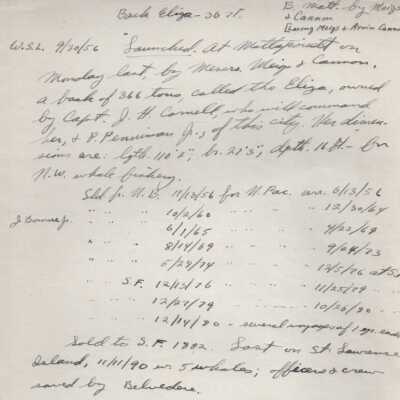 Bark Eliza - 36 ft.
B. Matt. by Meigs
& Cannon
(Loring Meigs & Arvin Cannon
W.S.L. 9/30/56 "Launched. At Mattapoisett on
Monday last, by Messrs. Meigs & Cannon,
a bark of 366 tons, called the Eliza, owned
by Capt. J. H. Cornell, who will command
her, & P. Penniman Jr. of this city. Her dimen-
sions are: lgth. 110' 2", br. 27' 3", dpth. 16 ft. - for
N.W. whale fishery.
Sld fr. N.B. 11/13/56 for N.Pac. arr. 6/13/56
J. Bourne Jr. " " " 10/2/60 " " " " 12/30/64
" " " 6/1/65 " " " " 4/22/69
" " " 8/14/69 " " " " 9/04/73
" " " 5/29/74 " " " 12/5/76 at S.F.
" " S.F. 12/13/76 " " " 11/25/79
" " " 12/27/79 " " " 10/20/80
" " " 12/14/80 - several voyages of 1 yr. each
Sold to S.F. 1882. Lost on St. Lawrence
Island, 11/11/90 w. 5 whales; officers & crew
saved by Belvedere.